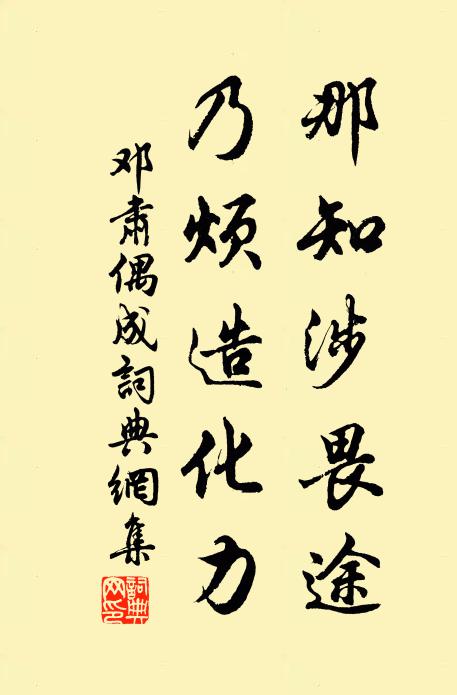 那知涉畏途
乃烦造化力
邓肃偶成詞典網集
詞典网印